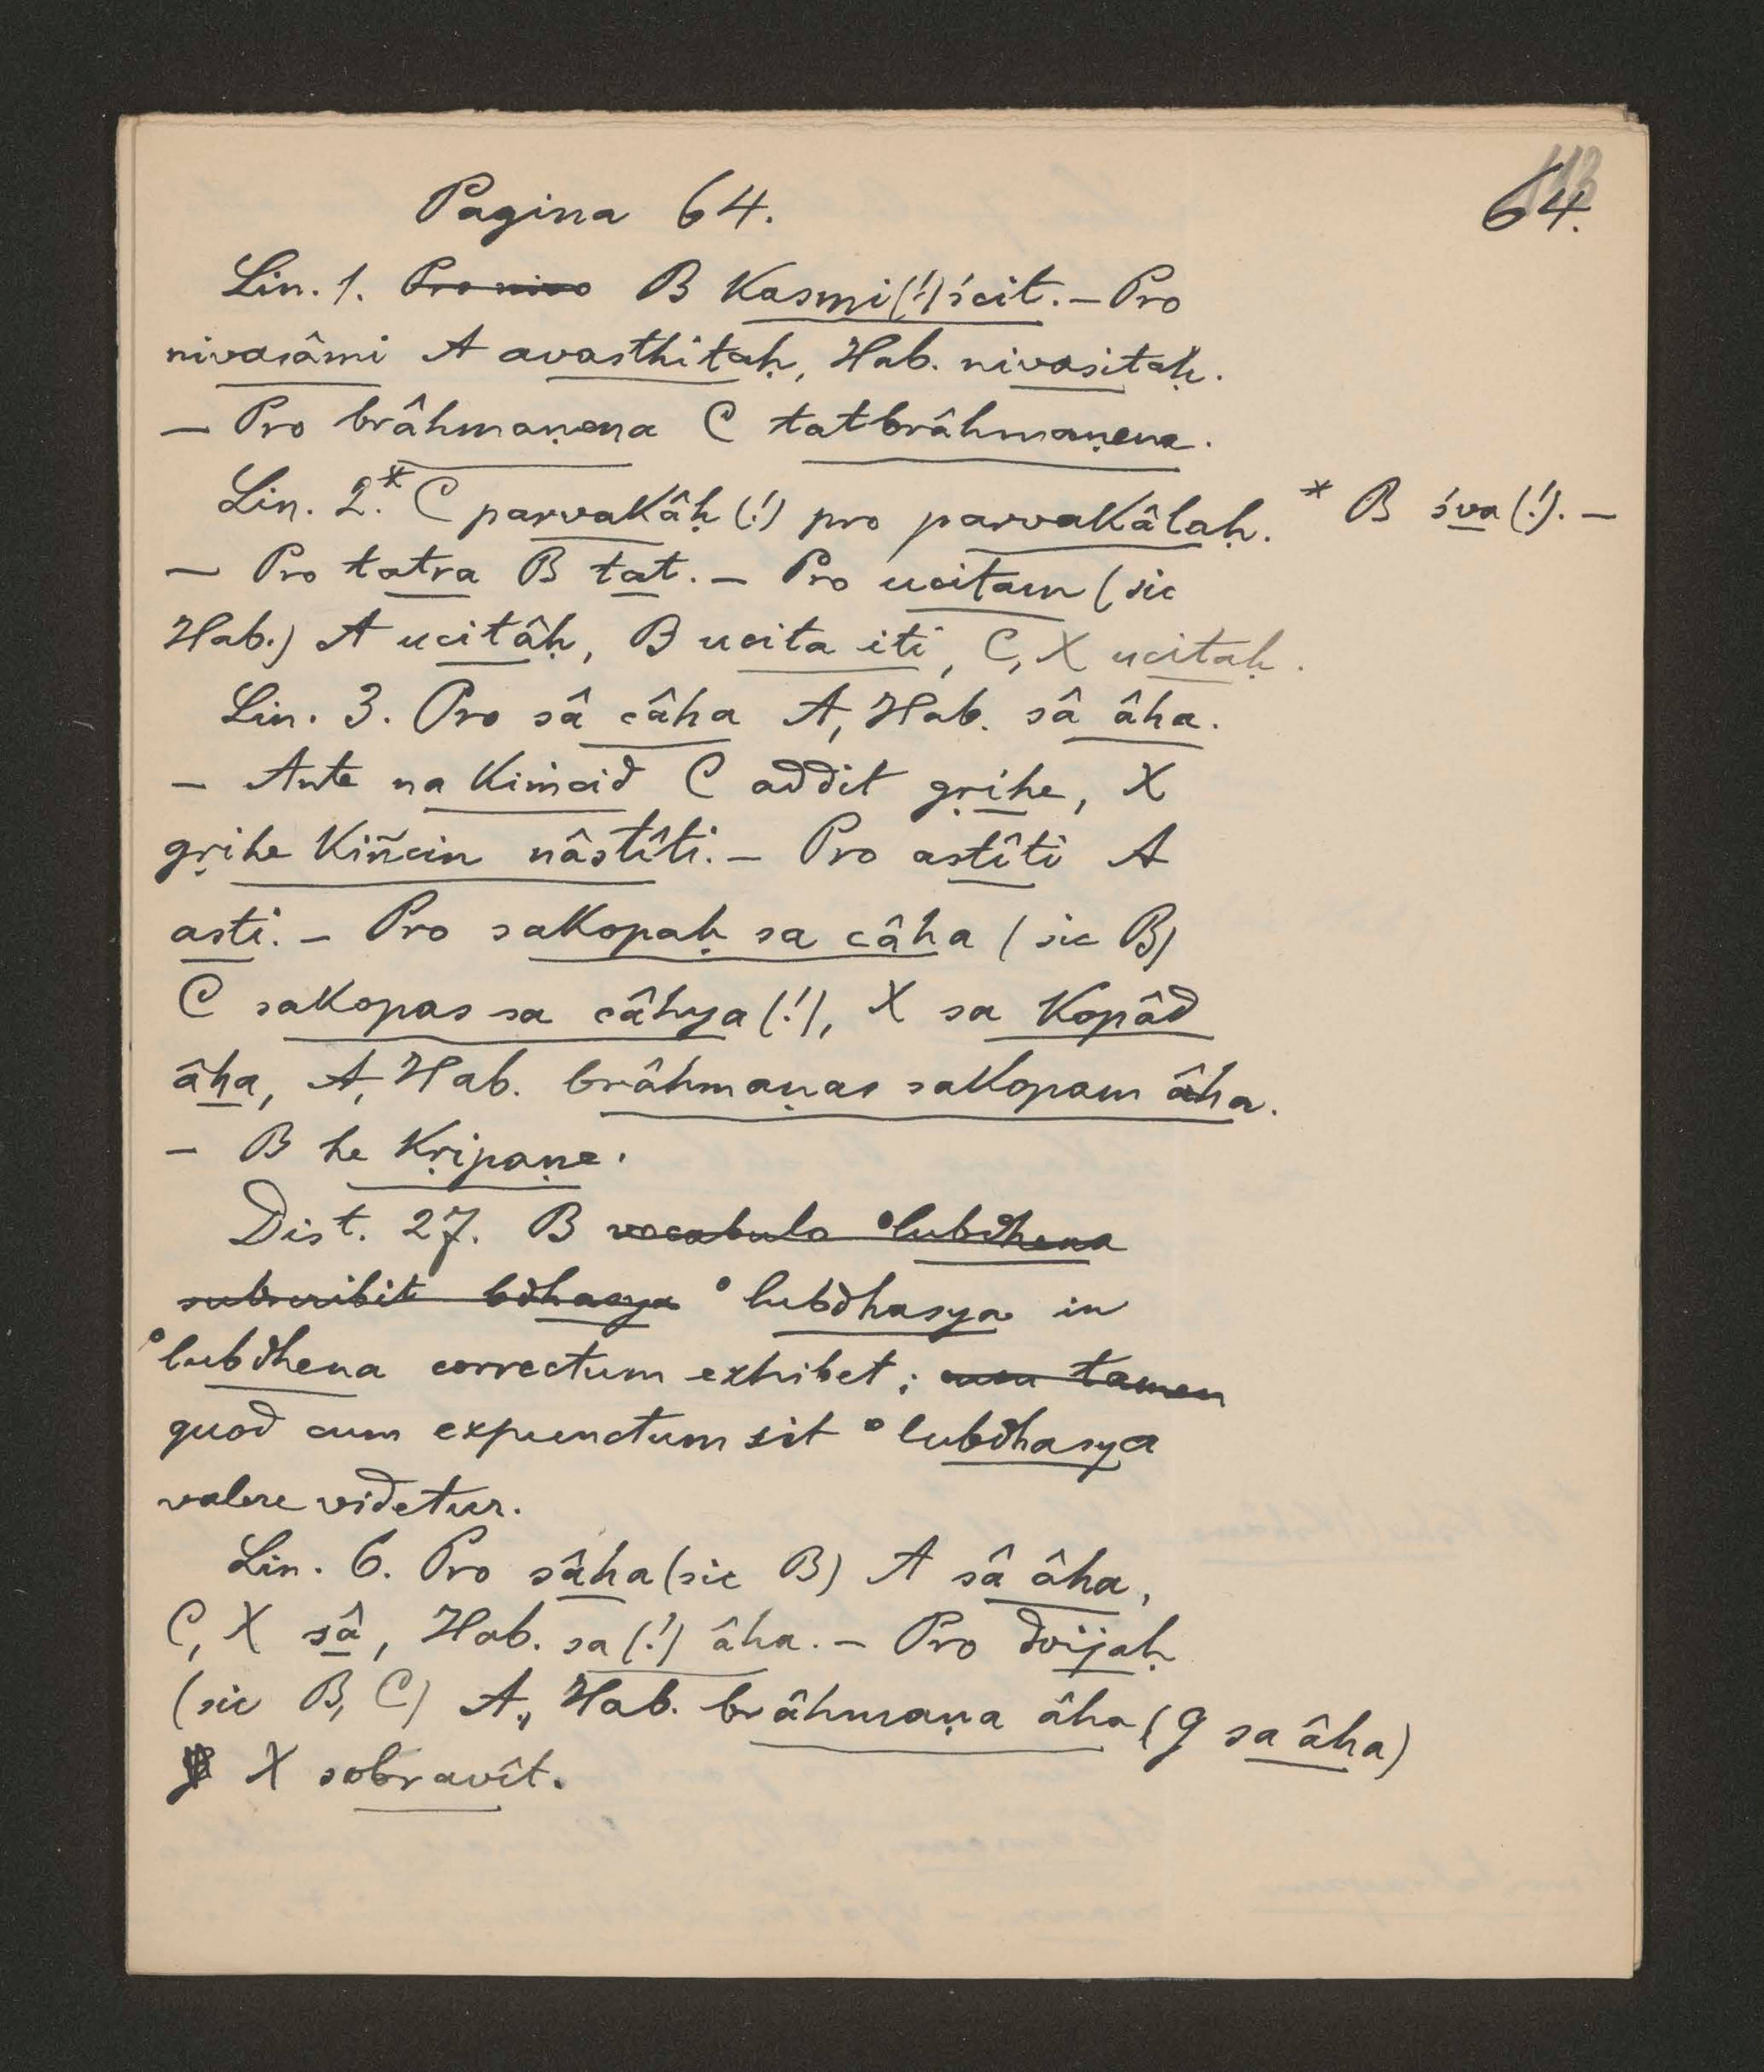 Pagina 64.
64.
Lin. 1. B kasmi(!)ścit. — Pro
nivasâmi A avasthitaḥ, Hab. nivasitaḥ.
— Pro brâhmaṇena C tatbrâhmaṇena.
Lin. 2.* C parvakâḥ (!) pro parvakâlaḥ. * B śva (!). —
— Pro tatra B tat. — Pro ucitam (sic
Hab.) A ucitâḥ, B ucita iti, C, X ucitaḥ.
Lin. 3. Pro sâ câha A, Hab. sâ âha.
— Ante na kiṁcid C addit gṛihe, X
gṛihe kiñcin nâstîti. — Pro astîti A
asti. — Pro sakopaḥ sa câha (sic B)
C sakopas sa câhya (!), X sa kopâd
âha, A, Hab. brâhmaṇas sakopam âha.
— B he kṛipaṇe.
Dist. 27. B vocabulo °lubdhena
subscribit bdhasya °lubdhasya in
°lubdhena correctum exhibet; non tamen
quod cum expunctum sit °lubdhasya
valere videtur.
Lin. 6. Pro sâha (sic B) A sâ âha,
C, X sâ, Hab. sa (!) âha. — Pro dvijaḥ
(sic B, C) A, Hab. brâhmaṇa âha (G sa âha)
X sobravît.